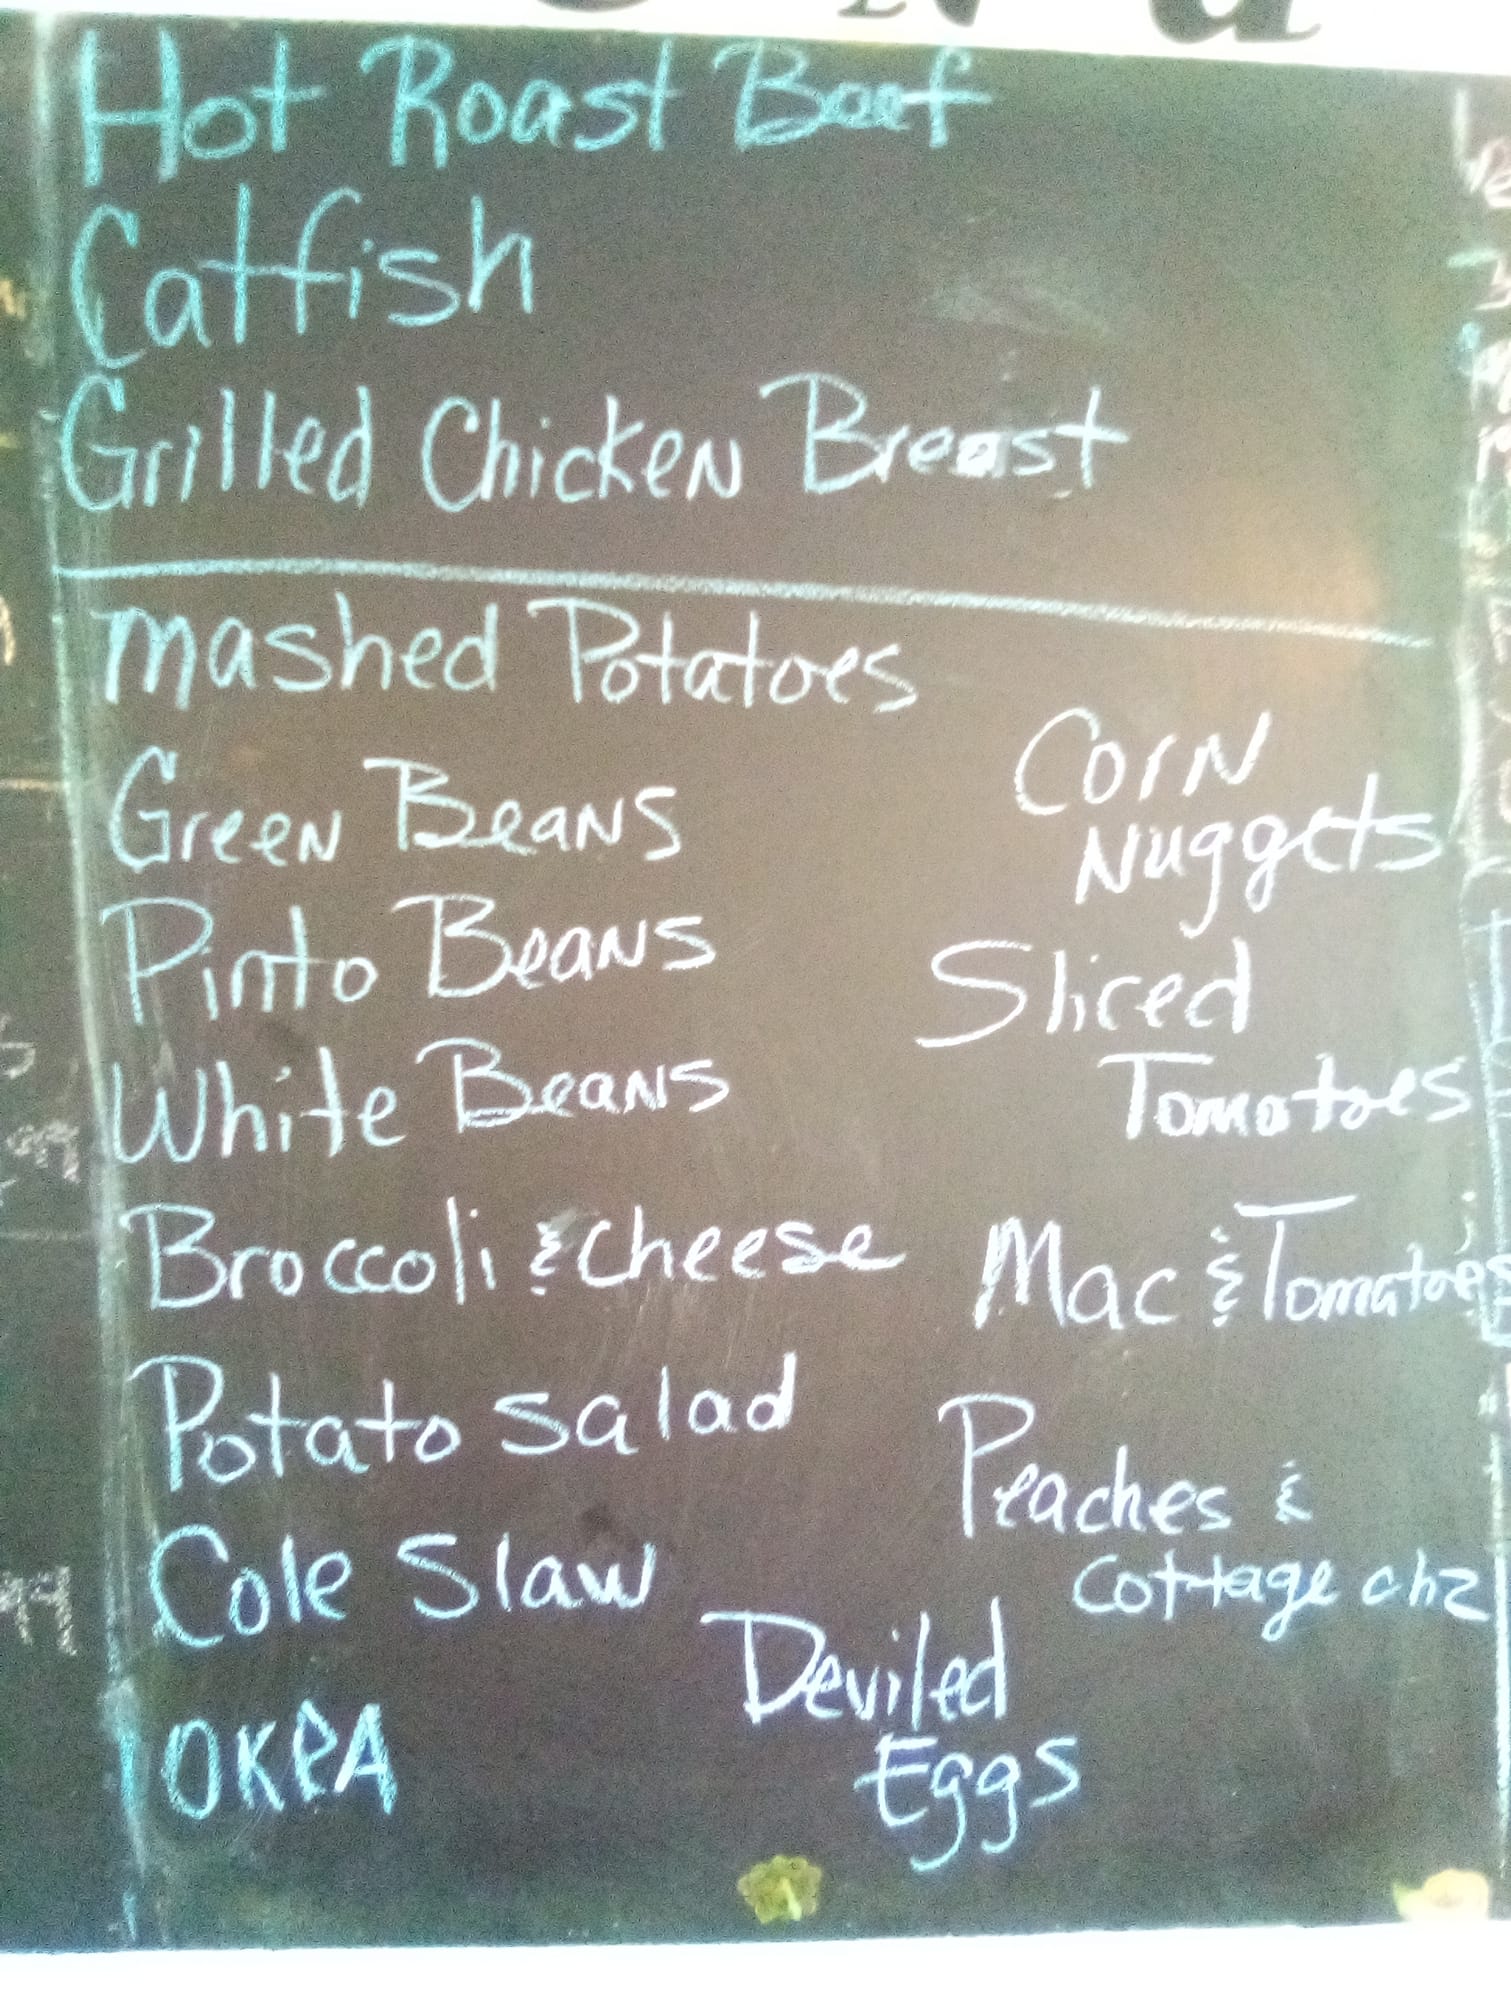 Hot Roast Beef
Catfish
Grilled Chicken Breast
Mashed Potatoes
Green Beans
Pinto Beans
White Beans
Broccoli & cheese
Potato salad
Cole Slaw
OKRA
Corn
Nuggets
Sliced
Tomatoes
Mac & Tomatoes
Peaches &
Cottage chz
Deviled
Eggs